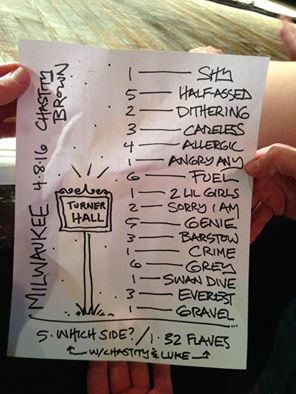 MILWAUKEE 4.8.16 CHASTITY BROWN
TURNER
HALL
1 — SHY
5 — HALF-ASSED
2 — DITHERING
3 — CARELESS
4 — ALLERGIC
1 — ANGRY ANY
6 — FUEL
1 — 2 LIL GIRLS
2 — SORRY I AM
5 — GENIE
3 — BARSTOW
1 — CRIME
6 — GREY
1 — SWAN DIVE
3 — EVEREST
1 — GRAVEL
5. WHICH SIDE? / 1. 32 FLAVES
W/CHASTITY & LUKE